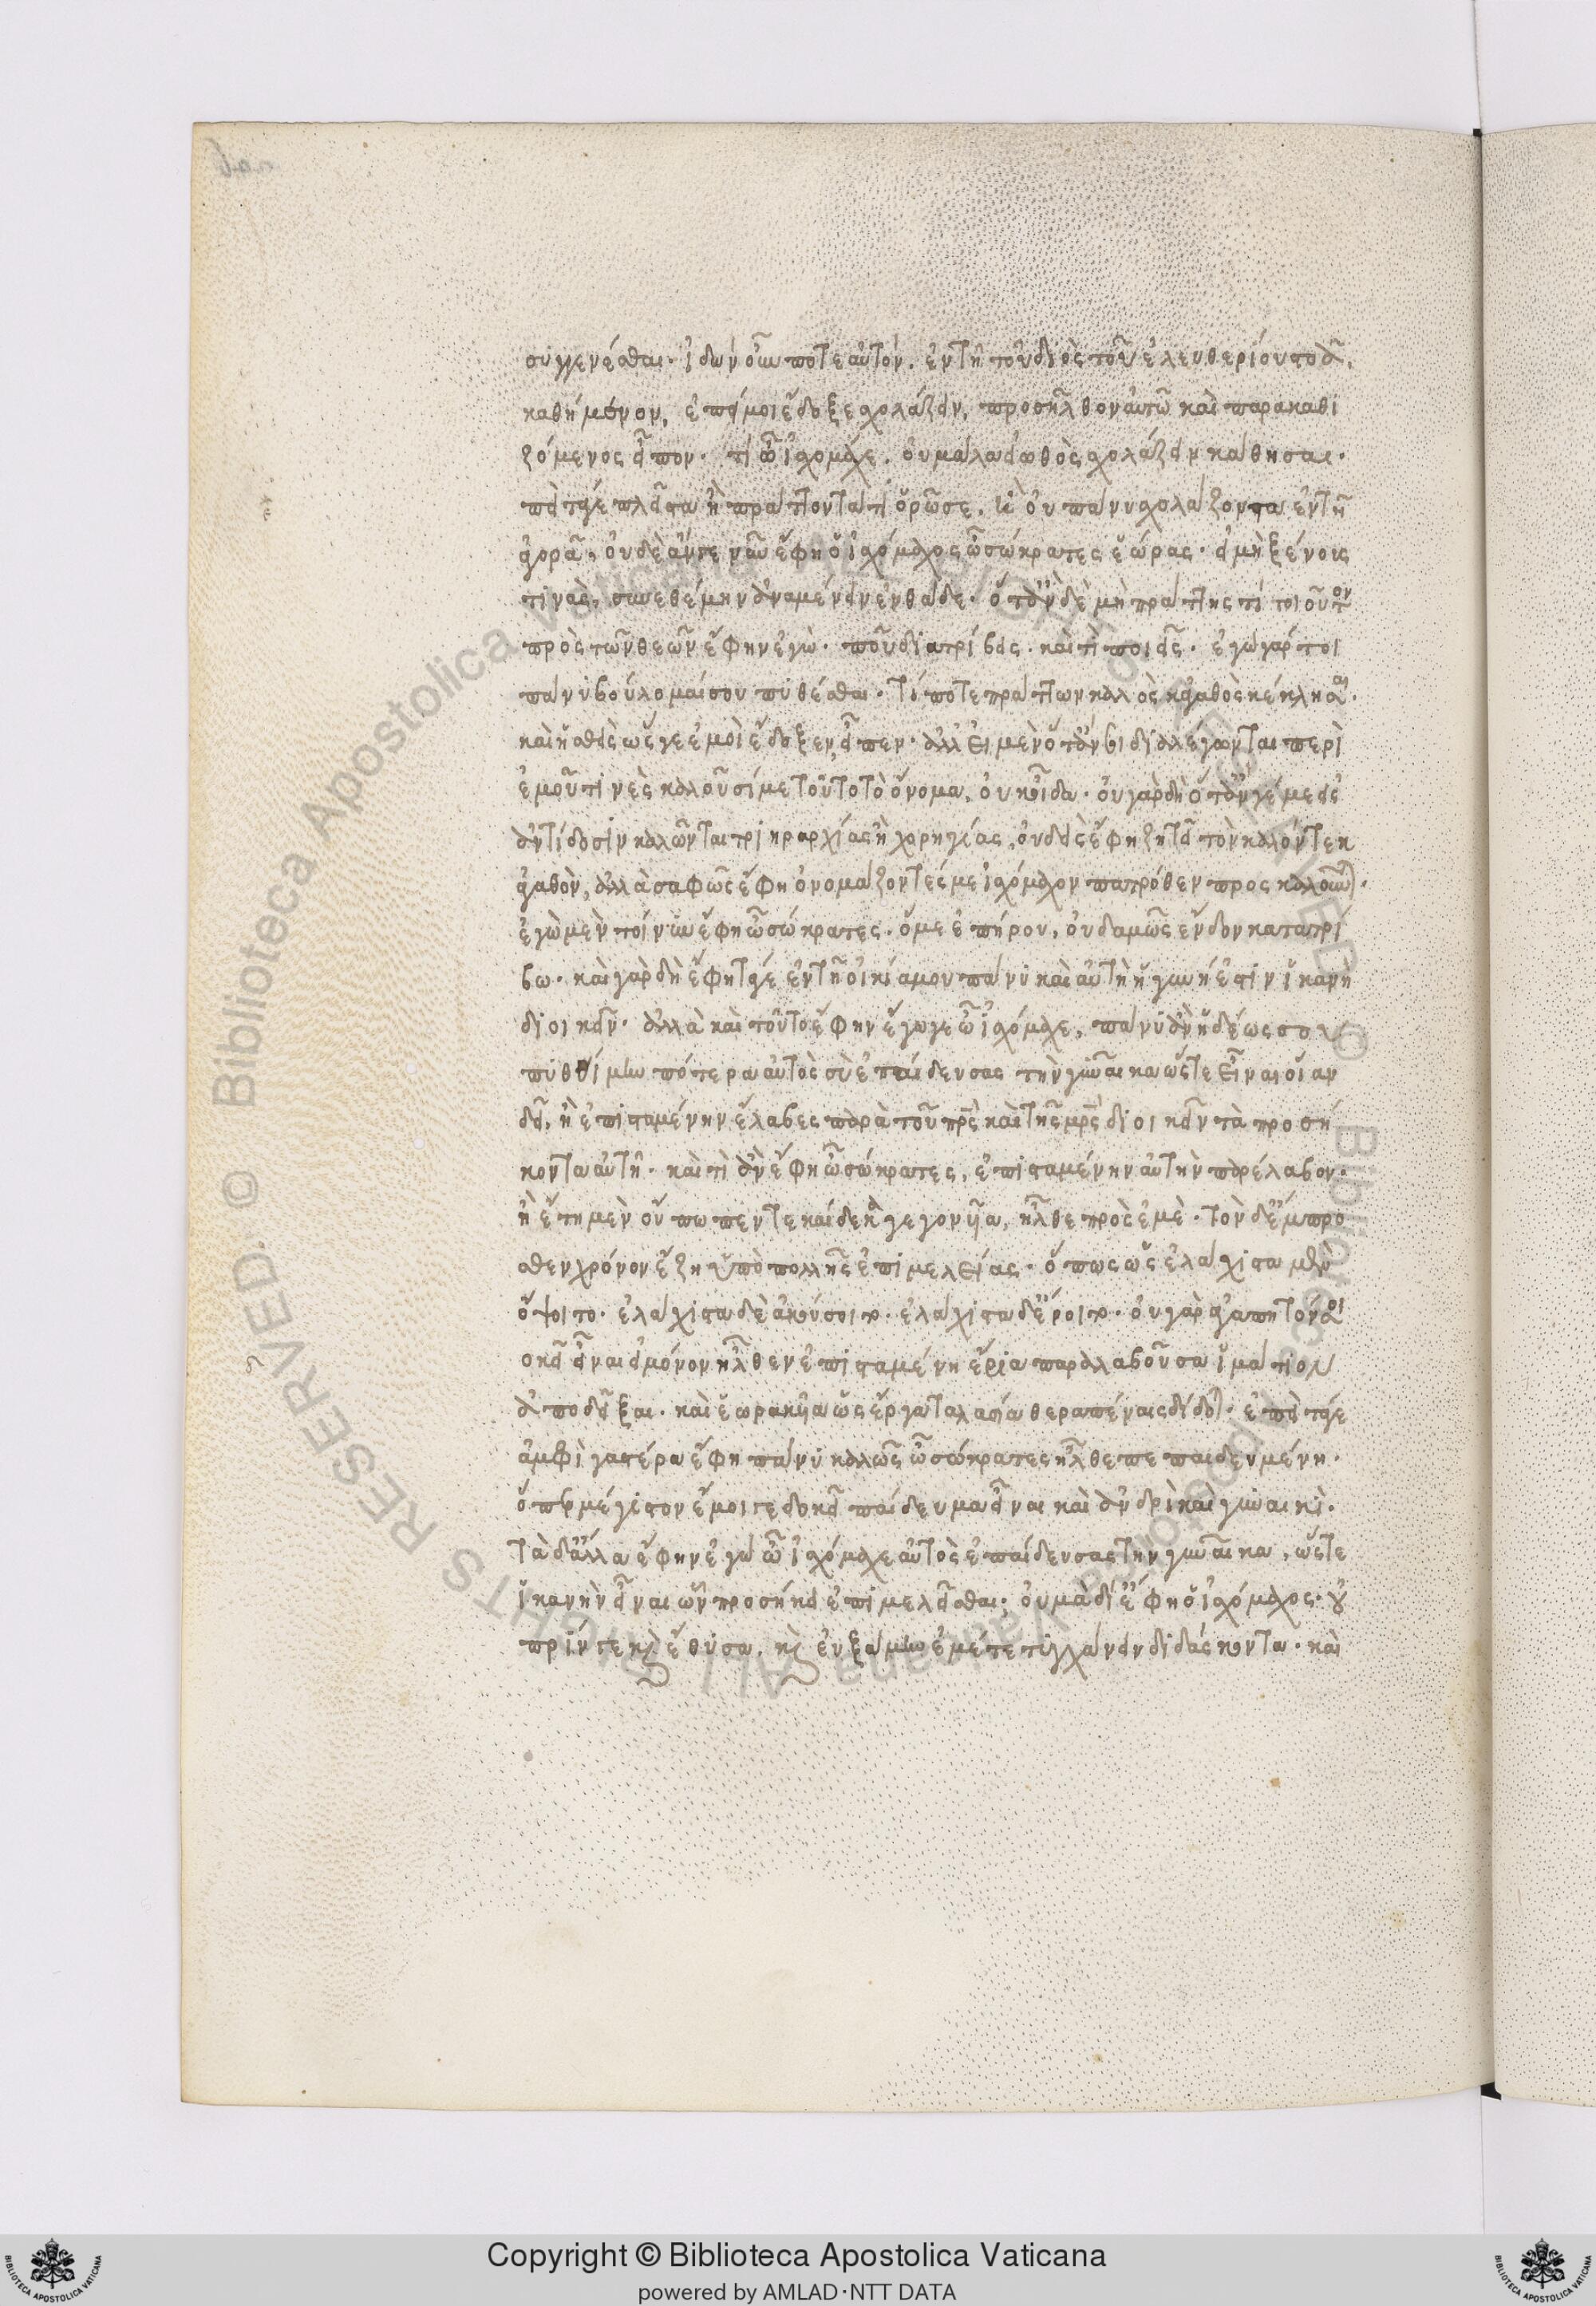 συγγενέσθαι. ἰδὼν οὖν ποτε αὐτὸν. ἐν τῆ τοῦ διὸς τοῦ ἐλευθερίου στοᾶ,
καθήμενον, ἐπεί μοι ἔδοξε σχολάζειν, προσῆλθον αὐτῶ καὶ παρακαθι
ζόμενος εἶπον. τί ὦ ἰσχόμαχε. οὐ μάλα εἰωθὸς σχολάζειν κάθησαι.
ἐπεὶ τά γε πλεῖστα ἢ πράττοντά τι ὁρῶ σε. ἢ οὐ πάνυ σχολάζοντα ἐν τῆ
ἀγορᾶ. οὐδὲ ἄν γε νῦν ἔφη ὁ ἰσχόμαχος ὦ σώκρατες ἑώρας. εἰ μὴ ξένους
τινὰς, συνεθέμην ἀναμένειν ἐνθάδε. ὅταν δὲ μὴ πράττης τί τοιοῦτον
πρὸς τῶν θεῶν ἔφην ἐγὼ. ποῦ διατρίβεις. καὶ τί ποιεῖς. ἐγὼ γάρ τοι
πάνυ βούλομαί σου πυθέσθαι. τί ποτε πράττων καλὸς κἀγαθὸς κέκλησαι.
καὶ ἡσθεὶς ὥς γε ἐμοὶ ἔδοξεν, εἶπεν. ἀλλ' εἰ μὲν ὅταν σοι διαλέγωνται περὶ
ἐμοῦ τινὲς καλοῦσί με τοῦτο τὸ ὄνομα, οὐκ οἶδα. οὐ γὰρ δὴ ὅταν γέ με εἰς
ἀντίδοσιν καλῶνται τριηραρχίας ἢ χορηγίας, οὐδεὶς ἔφη ζητεῖ τὸν καλόν τε κ
ἀγαθὸν, ἀλλὰ σαφῶς ἔφη ὀνομάζοντές με ἰσχόμαχον πατρόθεν προσκαλοῦνται.
ἐγὼ μὲν τοίνυν ἔφη ὦ σώκρατες. ὅ με ἐπήρου, οὐδαμῶς ἔνδον κατατρί
βω. καὶ γὰρ δὴ ἔφη τά γε ἐν τῆ οἰκία μου πάνυ καὶ αὐτὴ ἡ γυνή ἐστιν ἱκανὴ
διοικεῖν. ἀλλὰ καὶ τοῦτο ἔφην ἔγωγε ὦ ἰσχόμαχε, πάνυ ἂν ἡδέως σου
πυθοίμην πότερα αὐτὸς σὺ ἐπαίδευσας τὴν γυναῖκα ὥστε εἶναι οἵαν
δεῖ, ἢ ἐπισταμένην ἔλαβες παρὰ τοῦ πρς καὶ τῆς μρς διοικεῖν τὰ προσή
κοντα αὐτῆ. καὶ τὶ ἂν ἔφη ὦ σώκρατες, ἐπισταμένην αὐτὴν παρέλαβον.
ἣ ἔτη μὲν οὔπω πεντεκαίδεκα γεγονυῖα, ἦλθε πρὸς ἐμὲ. τὸν δ' ἔμπρο
σθεν χρόνον ἔζη ὑπὸ πολλῆς ἐπιμελείας. ὅπως ὡς ἐλάχιστα μὲν
ὄψοιτο. ἐλάχιστα δὲ ἀκούσοιτο. ἐλάχιστα δ' ἔροιτο. οὐ γὰρ ἀγαπητόν σοι
δοκεῖ εἶναι εἰ μόνον ἦλθεν ἐπισταμένη ἔρια παραλαβοῦσα ἱμάτιον
ἀποδεῖξαι. καὶ ἑωρακυῖα ὡς ἔργα ταλάσια θεραπαίναις δίδοται. ἐπεὶ τά γε
ἀμφὶ γαστέρα ἔφη πάνυ καλῶς ὦ σώκρατες ἦλθε πεπαιδευμένη.
ὅπερ μέγιστον ἔμοιγε δοκεῖ παίδευμα εἶναι καὶ ἀνδρὶ καὶ γυναικὶ.
τὰ δ' ἄλλα ἔφην ἐγὼ ὦ ἰσχόμαχε αὐτὸς ἐπαίδευσας τὴν γυναῖκα, ὥστε
ἱκανὴν εἶναι ὧν προσήκει ἐπιμελεῖσθαι. οὐ μὰ δί' ἔφη ὁ ἰσχόμαχος. οὐ
πρίν γε καὶ ἔθυσα, καὶ εὐξάμην ἐμέ τε τυγχάνειν διδάσκοντα. καὶ
Copyright © Biblioteca Apostolica Vaticana
powered by AMLAD·NTT DATA